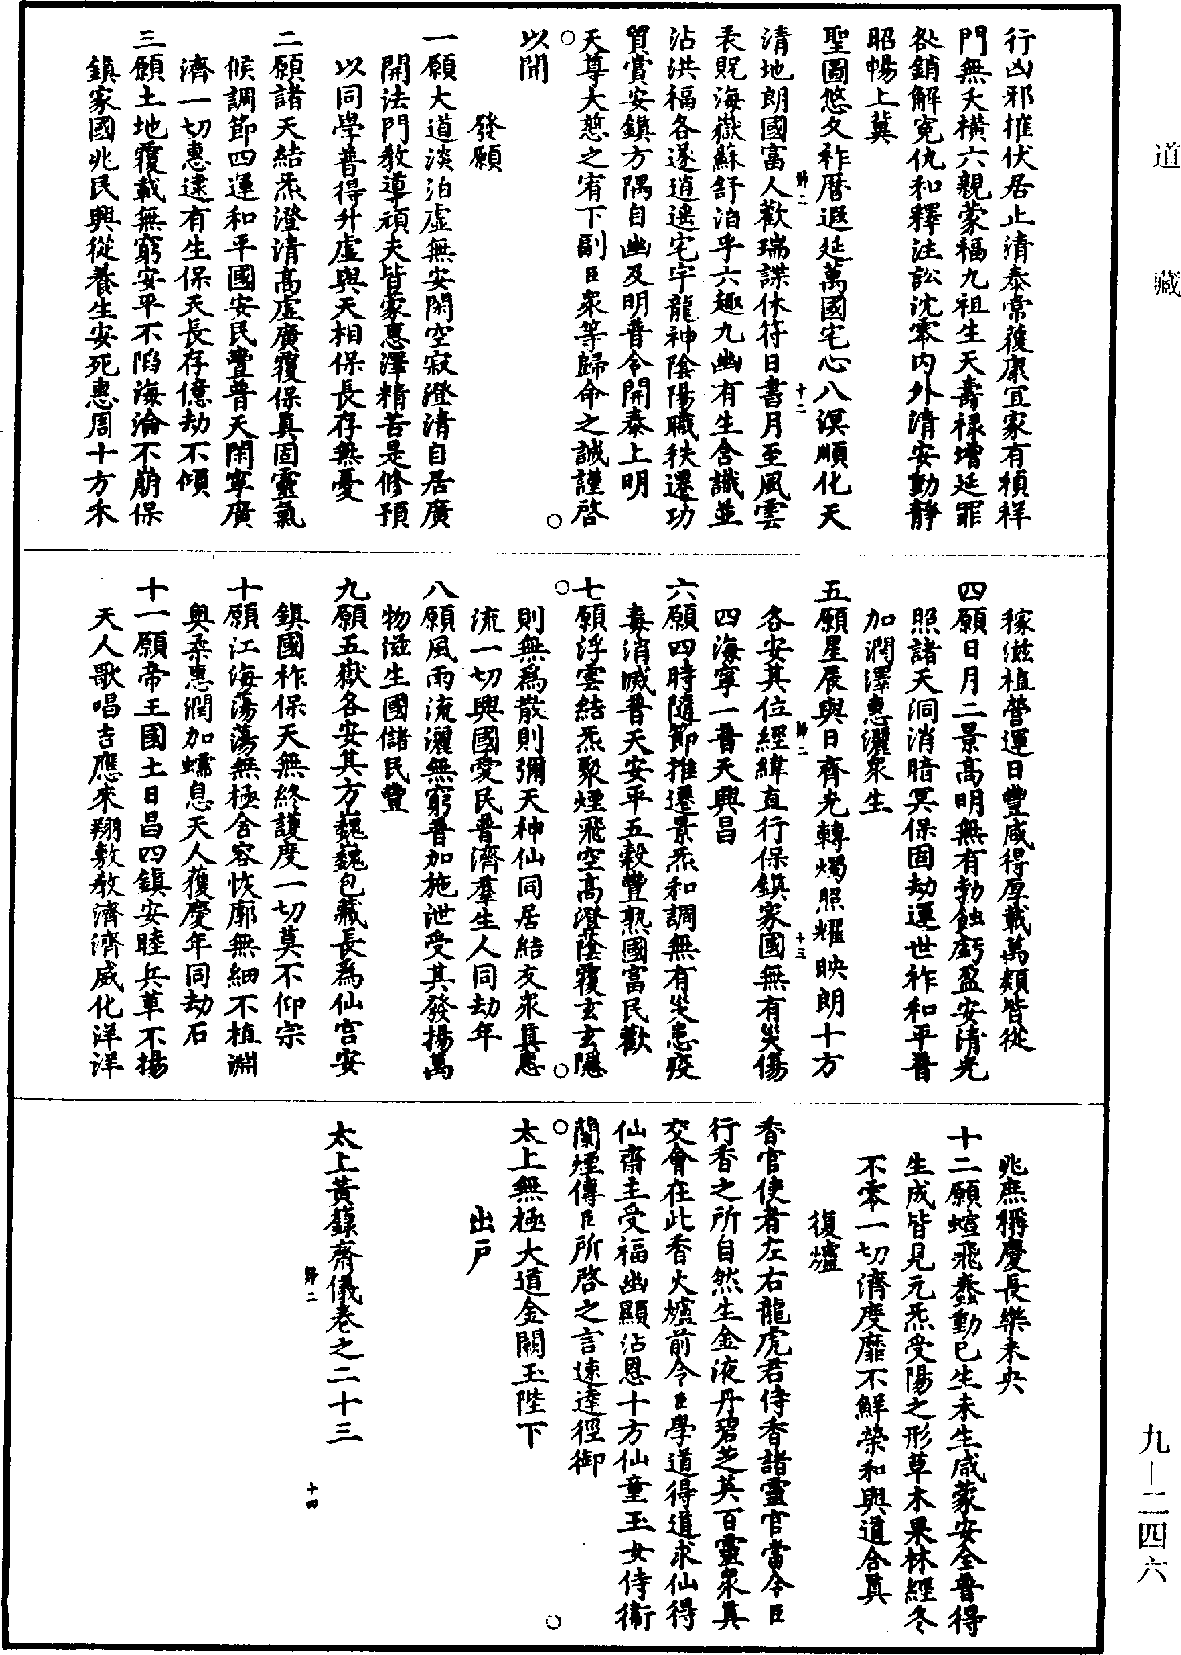 道藏
行凶邪摧伏居止清泰常獲康宜家有禎祥
門無夭橫六親蒙福九祖生天壽祿增延罪
咎銷解冤仇和釋注訟沈零內外清安動靜
昭暢上冀
聖圖悠久祚曆遐延萬國宅心八溟順化天
歸二
十二
清地朗國富人歡瑞諜休符日書月至風雲
表貺海嶽蘇舒洎乎六趣九幽有生含識並
沾洪福各遂逍遙宅宇龍神陰陽職秩遷功
賞安鎮方隅自幽及明普令開泰上明
天尊大慈之宥下副臣衆等歸命之誠謹啓
以聞
發願
一願大道淡泊虛無安閑空寂澄清自居廣
開法門教導頑夫皆蒙惠澤精苦是修預
以同學普得升虛與天相保長存無憂
二願諸天結炁澄清高虛廣覆保真固靈氣
候調節四運和平國安民豐普天閑寧廣
濟一切惠逮有生保天長存億劫不傾
三願土地覆載無窮安平不陷海淪不崩保
鎮家國兆民興從養生安死惠周十方禾
稼滋植營運日豐咸得厚載萬類皆從
四願日月二景高明無有勃蝕虧盈安清光
照諸天洞消暗冥保固劫運世祚和平普
加潤澤惠灑衆生
五願星辰與日齊光轉燭照耀映朗十方
歸二
十三
各安其位經緯直行保鎮家國無有災傷
四海寧一普天興昌
六願四時隨節推遷景炁和調無有災患疫
毒消滅普天安平五穀豐熟國富民歡
七願浮雲結炁聚煙飛空高澄蔭覆玄玄隱
則無為散則彌天神仙同居結友衆真惠
流一切興國愛民普濟羣生人同劫年
八願風雨流灑無窮普加施泄受其發揚萬
物滋生國儲民豐
九願五嶽各安其方巍巍包藏長為仙宫安
鎮國祚保天無終護度一切莫不仰宗
十願江海蕩蕩無極含容恢廓無細不植淵
奧柔惠潤加蠕息天人獲慶年同劫石
十一願帝王國土日昌四鎮安睦兵革不揚
天人歌唱吉應來翔敷教濟濟威化洋洋
兆庶稱慶長樂未央
十二願蝖飛蠢動已生未生咸蒙安全普得
生成皆見元炁受陽之形草木果林經冬
不零一切濟度靡不鮮榮和與道合真
復爐
香官使者左右龍虎君侍香諸靈官當令臣
行香之所自然生金液丹碧芝英百靈衆真
交會在此香火爐前令臣學道得道求仙得
仙齋主受福幽顯沾恩十方仙童玉女侍衛
蘭煙傳臣所啓之言速達徑御
太上無極大道金闕玉陛下
出戶
太上黃籙齋儀卷之二十三
歸二
十四
九—二四六